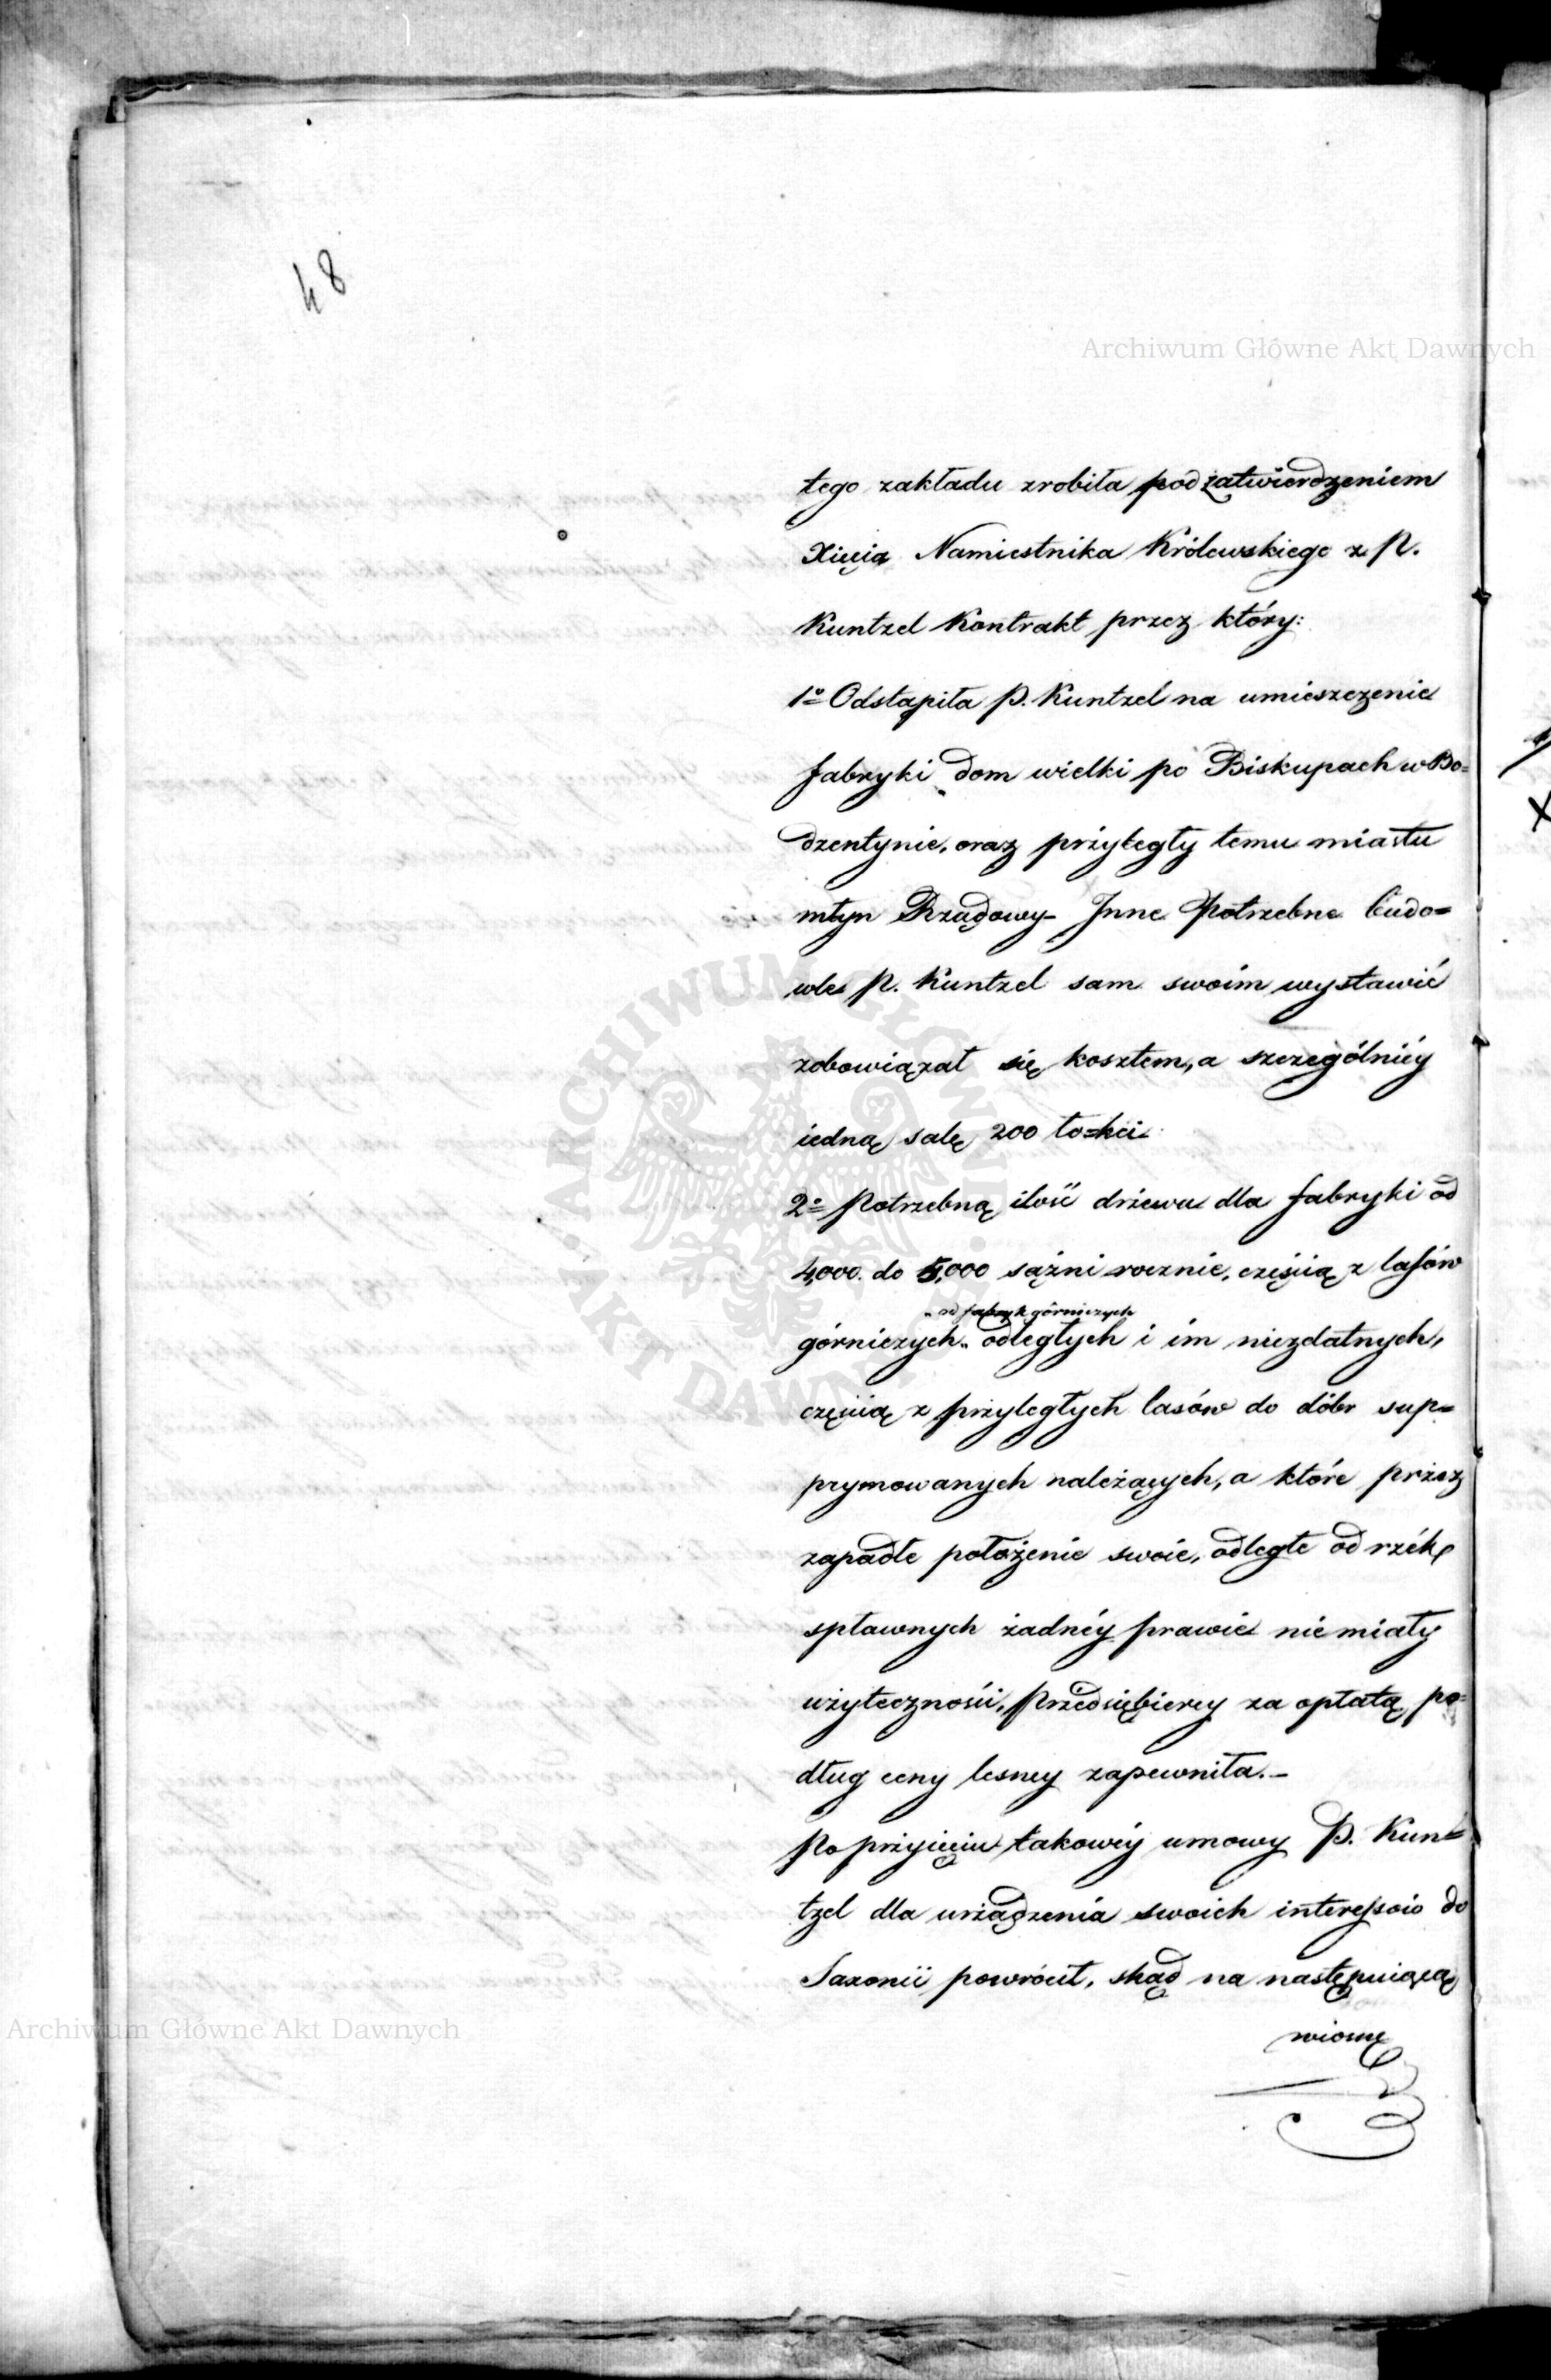 48
Archiwum Główne Akt Dawnych
tego zakładu zrobiła pod zatwierdzeniem
Xięcia Namiestnika Królewskiego z P.
Kuntzel Kontrakt przez który:
1o Odstąpiła P. Kuntzel na umieszczenie
fabryki „dom wielki po Biskupach w Bo=
dzentynie, oraz przyległy temu miastu
młyn Rządowy – Inne potrzebne budo=
wle P. Kuntzel sam swoim wystawić
zobowiązał się kosztem, a szczególniéy
iedną salę 200 ło=kci
2o Potrzebną ilość drzewa dla fabryki od
4,000. do 5,000 sążni rocznie, częścią z lasów
„ od fabryk górniczych
górniczych „ odległych i im niezdatnych,
częścią z przyległych lasów do dóbr sup=
prymowanych należących, a które przez
zapadłe położenie swoie, odległe od rzék
spławnych żadnéy prawie nie miały
użyteczności, Przedsiębiercy za opłatą po=
dług ceny lesney zapewniła. –
Po przyięciu takowéy umowy P. Kun=
tzel dla urządzenia swoich interessów do
Saxonii powrócił, skąd na następuiącą
wiosnę
Archiwum Główne Akt Dawnych
ARCHIWUM GŁÓWNE · AKT DAWNYCH ·